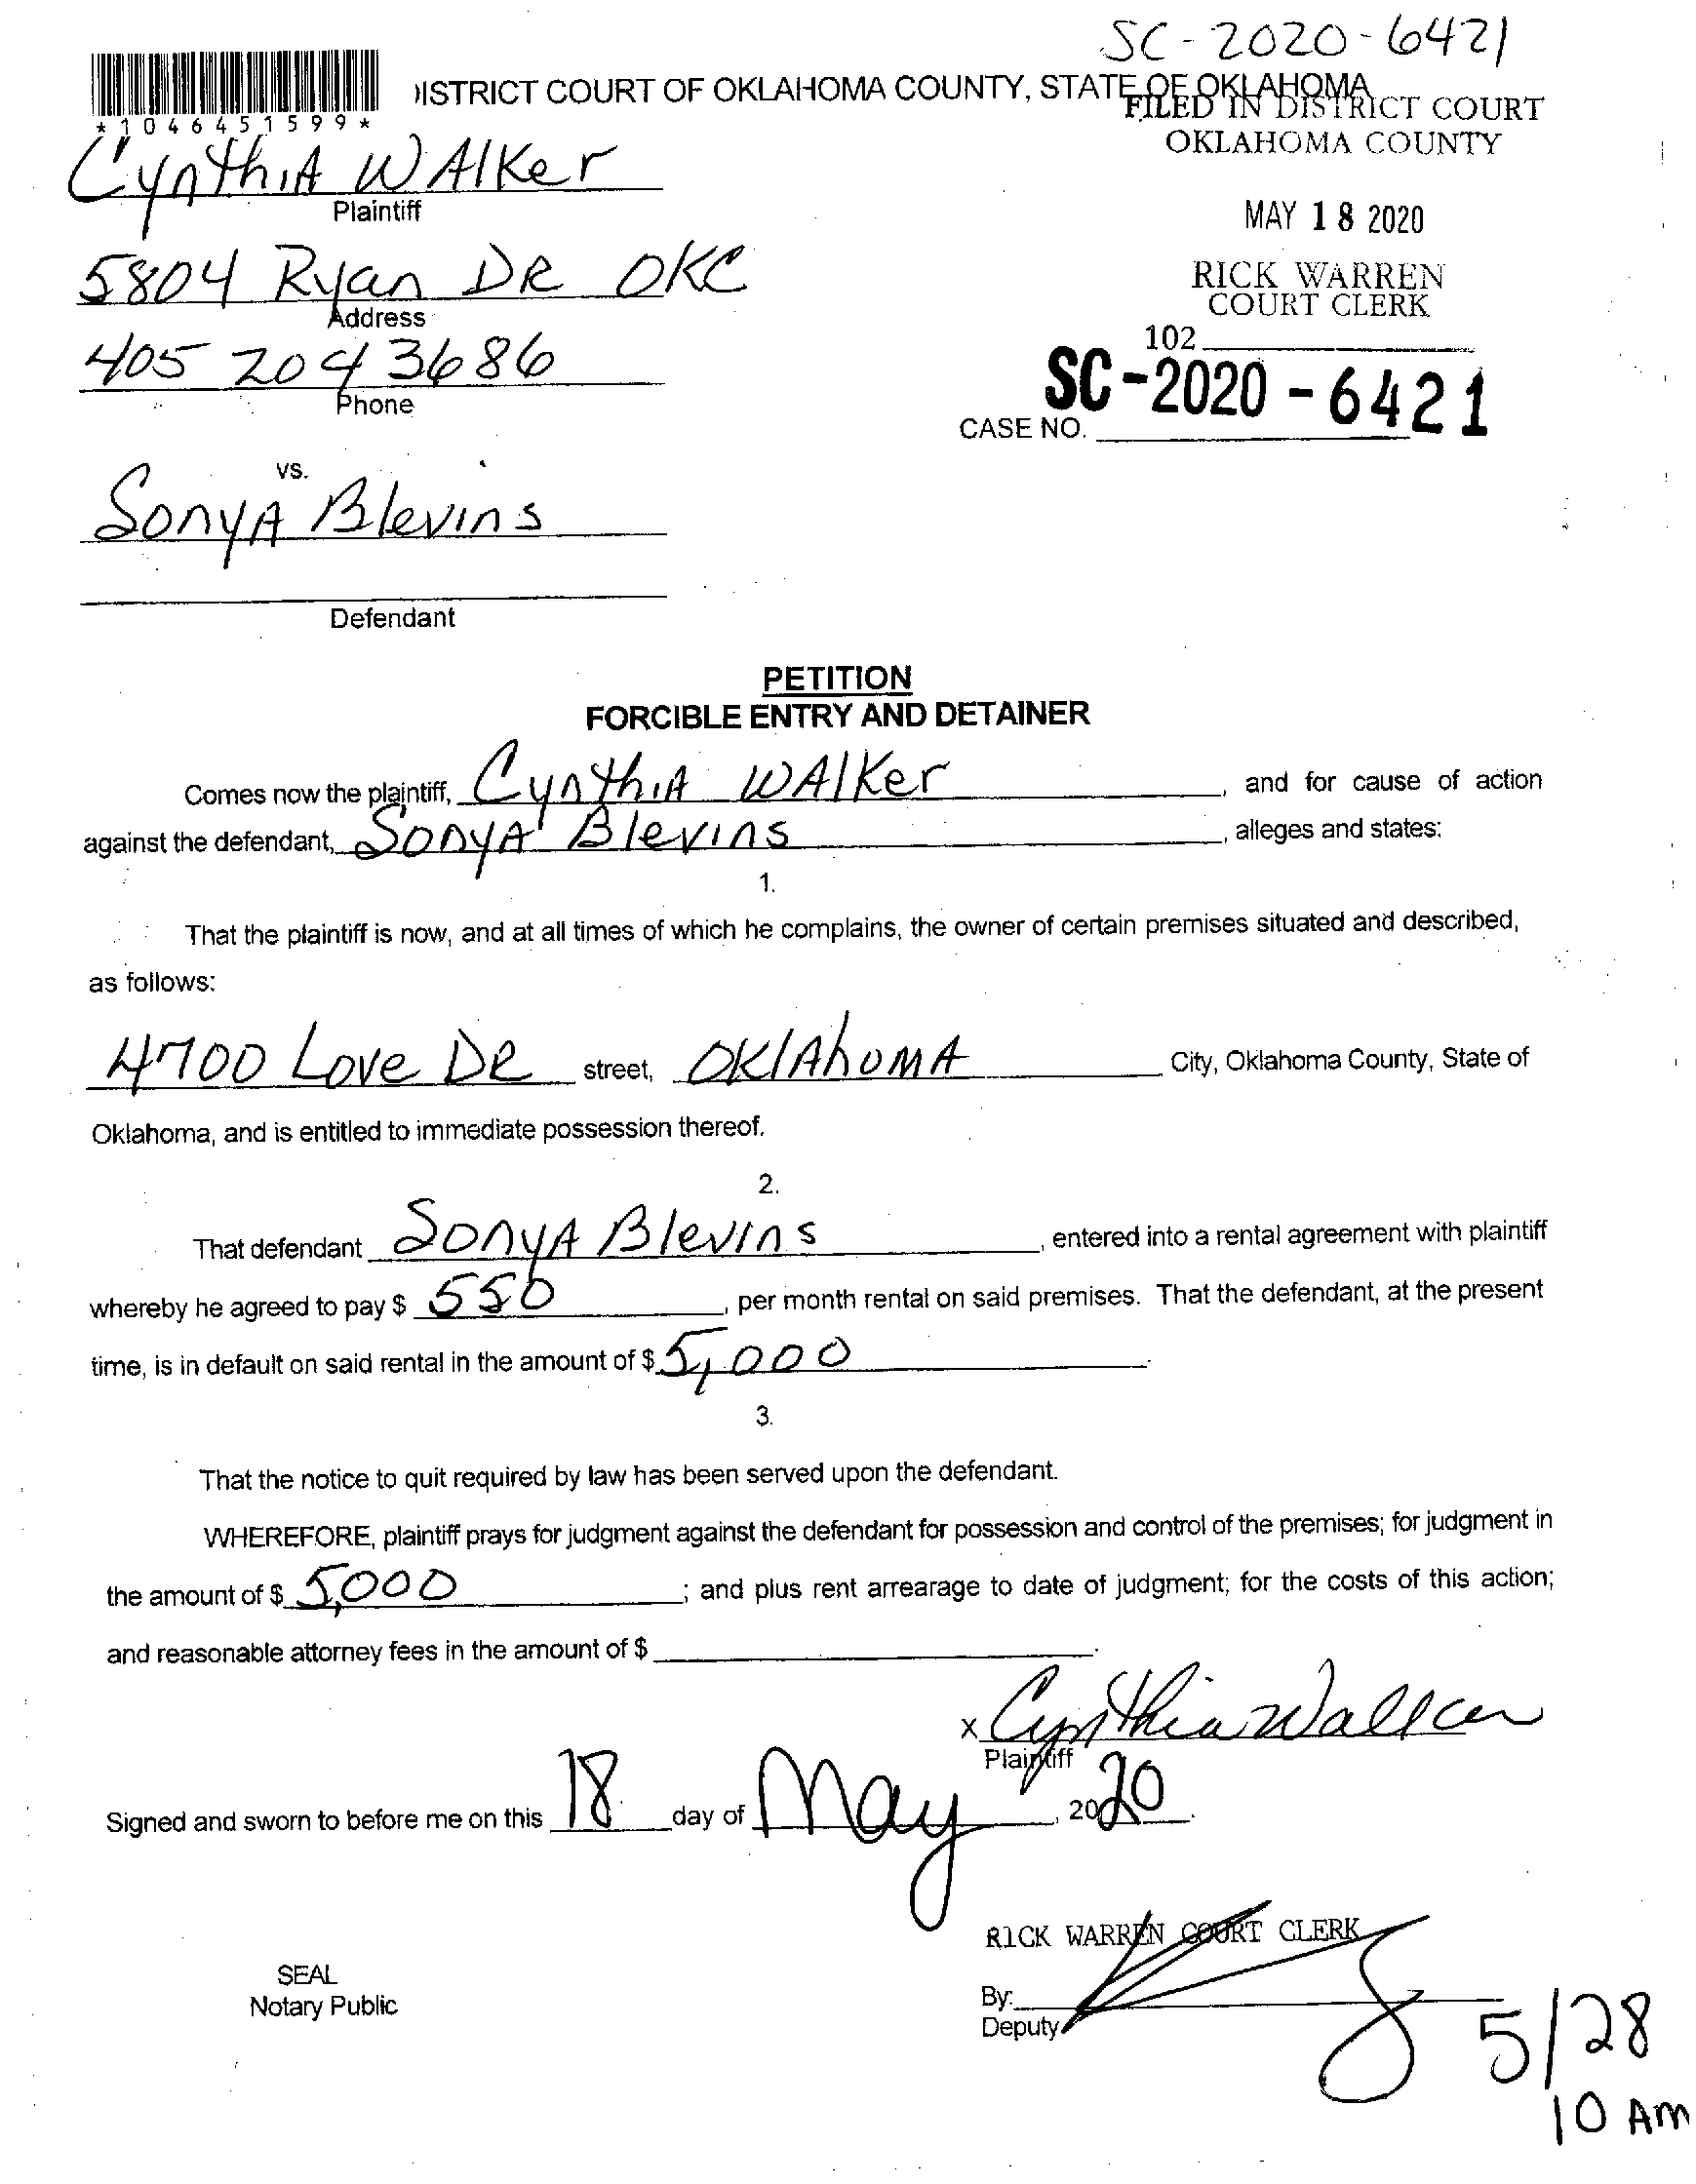 SC-2020-6421
DISTRICT COURT OF OKLAHOMA COUNTY, STATE OF OKLAHOMA
FILED IN DISTRICT COURT
OKLAHOMA COUNTY
*1046451599*
CynthiA WAlKer
Plaintiff
MAY 18 2020
5804 Ryan DR OKC
Address
RICK WARREN
COURT CLERK
405 204 3686
Phone
102
SC-2020-6421
CASE NO.
vs.
SonyA Blevins
Defendant
PETITION
FORCIBLE ENTRY AND DETAINER
Comes now the plaintiff, CynthiA WAlKer, and for cause of action
against the defendant, SonyA Blevins, alleges and states:
1.
That the plaintiff is now, and at all times of which he complains, the owner of certain premises situated and described,
as follows:
4700 Love DR street, OKlAhomA City, Oklahoma County, State of
Oklahoma, and is entitled to immediate possession thereof.
2.
That defendant SonyA Blevins, entered into a rental agreement with plaintiff
whereby he agreed to pay $ 550, per month rental on said premises. That the defendant, at the present
time, is in default on said rental in the amount of $ 5,000.
3.
That the notice to quit required by law has been served upon the defendant.
WHEREFORE, plaintiff prays for judgment against the defendant for possession and control of the premises; for judgment in
the amount of $ 5,000; and plus rent arrearage to date of judgment; for the costs of this action;
and reasonable attorney fees in the amount of $
x Cynthia Walker
Plaintiff
Signed and sworn to before me on this 18 day of May, 2020.
RICK WARREN COURT CLERK
SEAL
Notary Public
By:
Deputy
5/28
10 AM